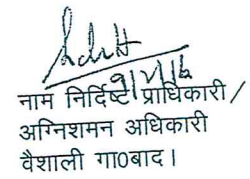 नाम निर्दिष्ट प्राधिकारी /
अग्निशमन अधिकारी
वैशाली गा0बाद।